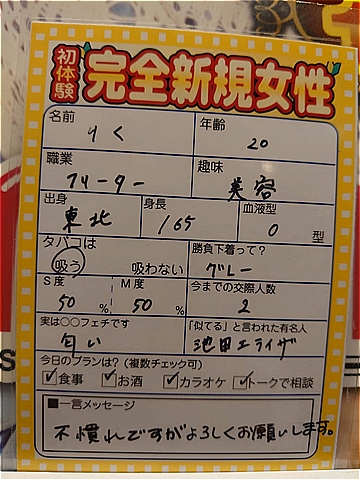 初体験
完全新規女性
名前 りく 年齢 20
職業 フリーター 趣味 美容
出身 東北 身長 165 血液型 O 型
タバコは 吸う 吸わない 勝負下着って? グレー
S度 50 % M度 50 % 今までの交際人数 2
実は○○フェチです 匂い 「似てる」と言われた有名人 池田エライザ
今日のプランは?(複数チェック可)
食事 お酒 カラオケ トークで相談
■一言メッセージ
不慣れですがよろしくお願いします。